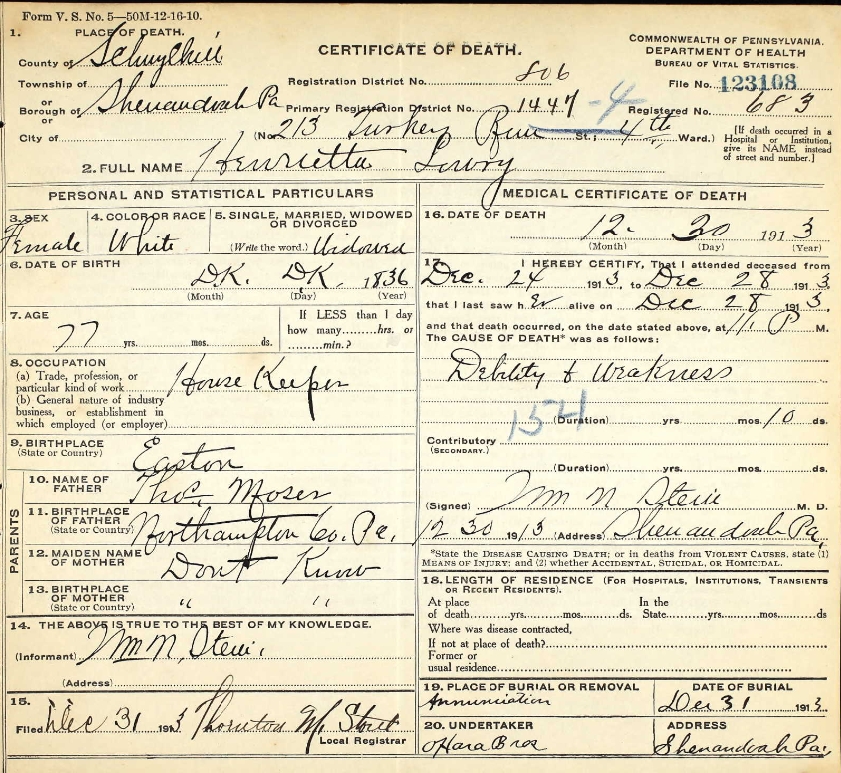 Form V. S. No. 5—50M-12-16-10.
1. PLACE OF DEATH.
County of Schuylkill
Township of
or
Borough of Shenandoah Pa
or
City of
CERTIFICATE OF DEATH.
Registration District No. 806
Primary Registration District No. 1447 -4
(No. 213 Turkey Run St.; 4th Ward.)
COMMONWEALTH OF PENNSYLVANIA.
DEPARTMENT OF HEALTH
BUREAU OF VITAL STATISTICS.
File No. 123108
Registered No. 683
[If death occurred in a
Hospital or Institution,
give its NAME instead
of street and number.]
2. FULL NAME Henrietta Lowry
PERSONAL AND STATISTICAL PARTICULARS
3. SEX
Female
4. COLOR OR RACE
White
5. SINGLE, MARRIED, WIDOWED
OR DIVORCED
(Write the word.) Widowed
6. DATE OF BIRTH
DK. DK. 1836
(Month) (Day) (Year)
7. AGE
77 yrs. mos. ds.
If LESS than 1 day
how many hrs. or
min.?
8. OCCUPATION
(a) Trade, profession, or
particular kind of work House Keeper
(b) General nature of industry
business, or establishment in
which employed (or employer)
9. BIRTHPLACE
(State or Country) Easton
PARENTS
10. NAME OF
FATHER Thos. Moser
11. BIRTHPLACE
OF FATHER
(State or Country) Northampton Co. Pa.
12. MAIDEN NAME
OF MOTHER Dont Know
13. BIRTHPLACE
OF MOTHER
(State or Country) " "
14. THE ABOVE IS TRUE TO THE BEST OF MY KNOWLEDGE.
(Informant) Wm N. Stein.
(Address)
15.
Filed Dec 31 1913 Thornton M Stout
Local Registrar
MEDICAL CERTIFICATE OF DEATH
16. DATE OF DEATH
12. 30 1913
(Month) (Day) (Year)
17. I HEREBY CERTIFY, That I attended deceased from
Dec. 24 1913, to Dec 28 1913,
that I last saw her alive on Dec 28 1913,
and that death occurred, on the date stated above, at 11. P M.
The CAUSE OF DEATH* was as follows:
Debility & Weakness
1521
(Duration) yrs. mos. 10 ds.
Contributory
(SECONDARY.)
(Duration) yrs. mos. ds.
(Signed) Wm N Stein M. D.
12 30 1913 (Address) Shenandoah Pa,
*State the DISEASE CAUSING DEATH; or in deaths from VIOLENT CAUSES, state (1)
MEANS OF INJURY; and (2) whether ACCIDENTAL, SUICIDAL OR HOMICIDAL.
18. LENGTH OF RESIDENCE (FOR HOSPITALS, INSTITUTIONS, TRANSIENTS
OR RECENT RESIDENTS).
At place In the
of death yrs. mos. ds. State yrs. mos. ds
Where was disease contracted,
If not at place of death?
Former or
usual residence
19. PLACE OF BURIAL OR REMOVAL
Annunciation
DATE OF BURIAL
Dec 31 1913
20. UNDERTAKER
O'Hara Bros
ADDRESS
Shenandoah Pa,